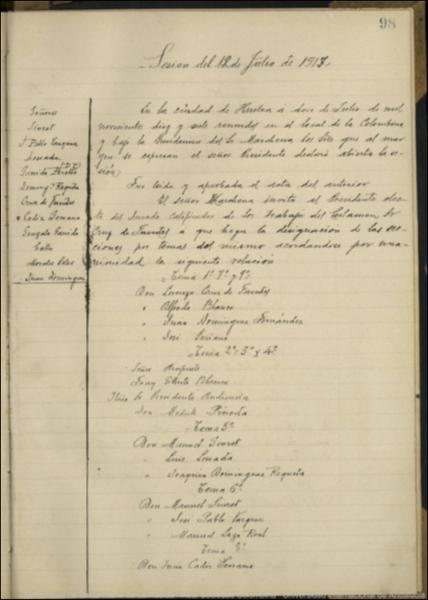 98
Sesion del 12 de Julio de 1917
Señores
Siurot
J. Pablo Vazquez
Losada
Garrido Perelló
Domingz Roqueta
Cruz de Fuentes
Cádiz Serrano
Gonzalo Garrido
Calle
Morales
Juan Dominguez
En la ciudad de Huelva a doce de Julio de mil
novecientos diez y siete reunidos en el local de la Colombina
y bajo la Presidencia del Sr Marchena los Sres que al mar
gen se expresan el señor Presidente declaró abierta la se
sión
Fue leida y aprobada el acta del anterior
El señor Marchena invita al Presidente
del Jurado Calificador de los trabajos del Certamen Sr
Cruz de Fuentes a que haga la designación de las
ciones por temas del mismo acordandose por una
nimidad la siguiente relación
Tema 1º 7º y 9º
Don Lorenzo Cruz de Fuentes
" Alfredo Blanco
" Juan Dominguez Fernández
" José Soriano
Tema 2º 3º y 4º
Señor
Fray Blanco
Presidente Audiencia
Don Pineda
Tema 5º
Don Manuel Siurot
" Luis Losada
" Joaquin Dominguez Roqueta
Tema 6º
Don Manuel Siurot
" José Pablo Vazquez
" Manuel Lazo Real
Tema
Don Juan Cádiz Serrano